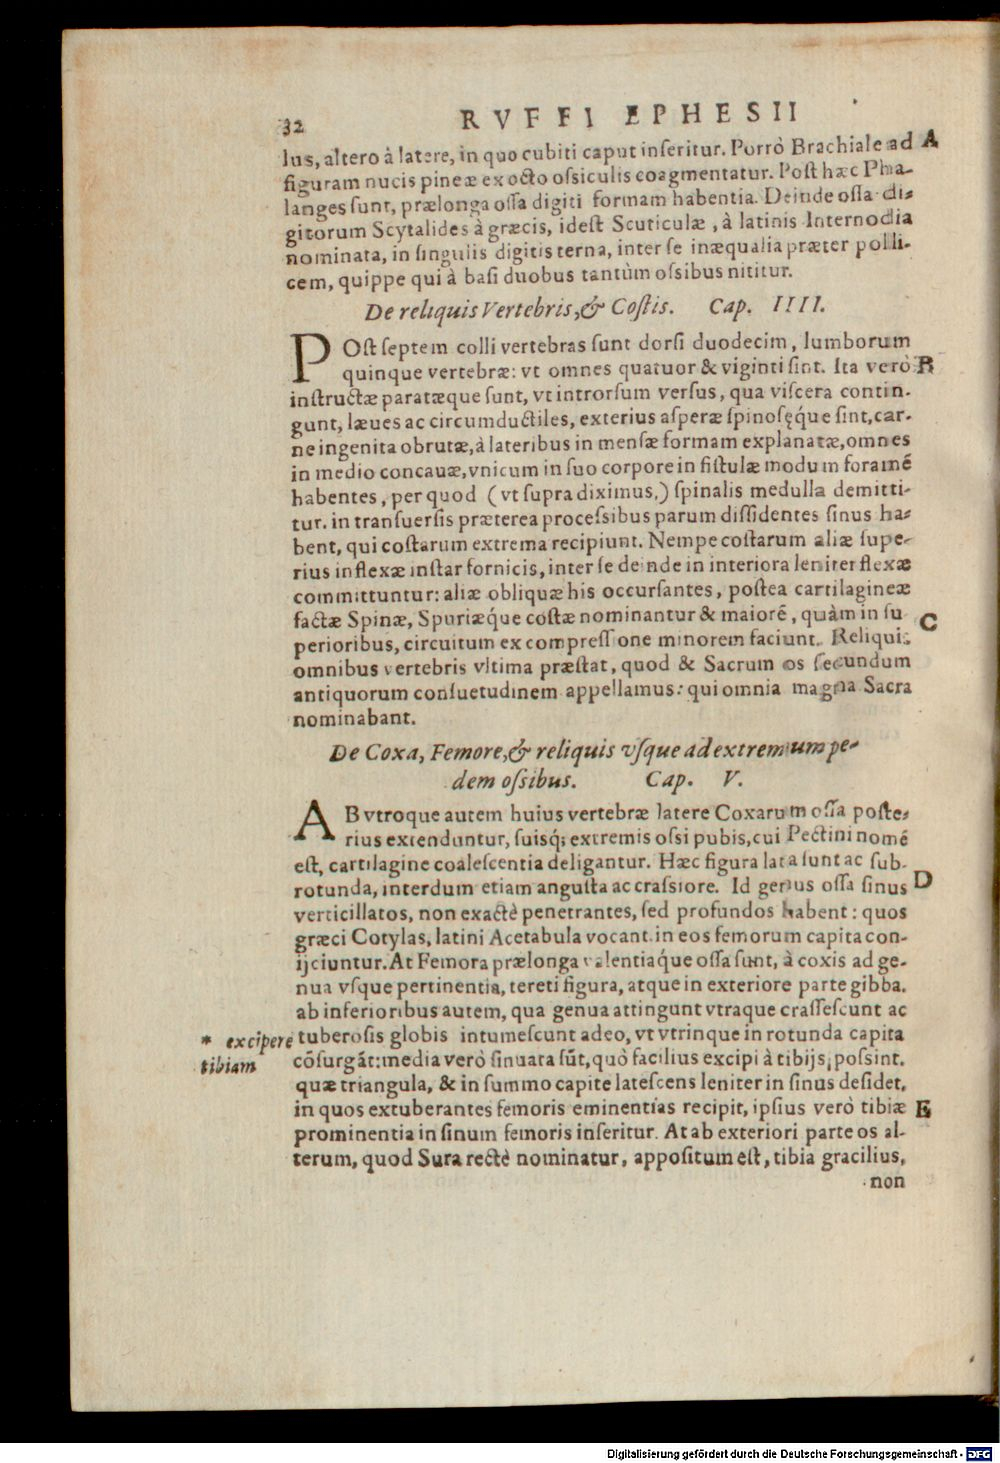 32 RVFFI EPHESII
lus, altero à latere, in quo cubiti caput inſeritur. Porrò Brachiale ad A
figuram nucis pineæ ex octo oſsiculis coagmentatur. Poſt hæc Pha-
langes ſunt, prælonga oſſa digiti formam habentia. Deinde oſſa di-
gitorum Scytalides à græcis, ideſt Scuticulæ, à latinis Internodia
nominata, in ſingulis digitis terna, inter ſe inæqualia præter polli-
cem, quippe qui à baſi duobus tantùm oſsibus nititur.
De reliquis Vertebris, & Coſtis. Cap. IIII.
POſt ſeptem colli vertebras ſunt dorſi duodecim, lumborum
quinque vertebræ: vt omnes quatuor & viginti ſint. Ita verò B
inſtructæ paratæque ſunt, vt introrſum verſus, qua viſcera contin-
gunt, læues ac circumductiles, exterius aſperæ ſpinoſęq́ue ſint, car-
ne ingenita obrutæ, à lateribus in menſæ formam explanatæ, omnes
in medio concauæ, vnicum in ſuo corpore in fiſtulæ modum foramẽ
habentes, per quod (vt ſupra diximus,) ſpinalis medulla demitti-
tur. in tranſuerſis præterea proceſsibus parum diſſidentes ſinus ha-
bent, qui coſtarum extrema recipiunt. Nempe coſtarum aliæ ſupe-
rius inflexæ inſtar fornicis, inter ſe deinde in interiora leniter flexæ
committuntur: aliæ obliquæ his occurſantes, poſtea cartilagineæ
factæ Spinæ, Spuriæq́ue coſtæ nominantur & maiorẽ, quàm in ſu C
perioribus, circuitum ex compreſſione minorem faciunt. Reliquis
omnibus vertebris vltima præſtat, quod & Sacrum os ſecundum
antiquorum conſuetudinem appellamus: qui omnia magna Sacra
nominabant.
De Coxa, Femore, & reliquis vſque ad extremum pe-
dem oſsibus. Cap. V.
AB vtroque autem huius vertebræ latere Coxarum oſſa poſte-
rius extenduntur, ſuisq; extremis oſsi pubis, cui Pectini nomẽ
eſt, cartilagine coaleſcentia deligantur. Hæc figura lata ſunt ac ſub-
rotunda, interdum etiam anguſta ac craſsiore. Id genus oſſa ſinus D
verticillatos, non exactè penetrantes, ſed profundos habent: quos
græci Cotylas, latini Acetabula vocant. in eos femorum capita con-
ijciuntur. At Femora prælonga valentiaq́ue oſſa ſunt, à coxis ad ge-
nua vſque pertinentia, tereti figura, atque in exteriore parte gibba.
ab inferioribus autem, qua genua attingunt vtraque craſſeſcunt ac
* excipere tuberoſis globis intumeſcunt adeo, vt vtrinque in rotunda capita
tibiam cõſurgãt: media verò ſinuata ſũt, quò facilius excipi à tibijs, poſsint.
quæ triangula, & in ſummo capite lateſcens leniter in ſinus deſidet,
in quos extuberantes femoris eminentias recipit, ipſius verò tibiæ E
prominentia in ſinum femoris inſeritur. At ab exteriori parte os al-
terum, quod Sura rectè nominatur, appoſitum eſt, tibia gracilius,
non
Digitalisierung gefördert durch die Deutsche Forschungsgemeinschaft - DFG